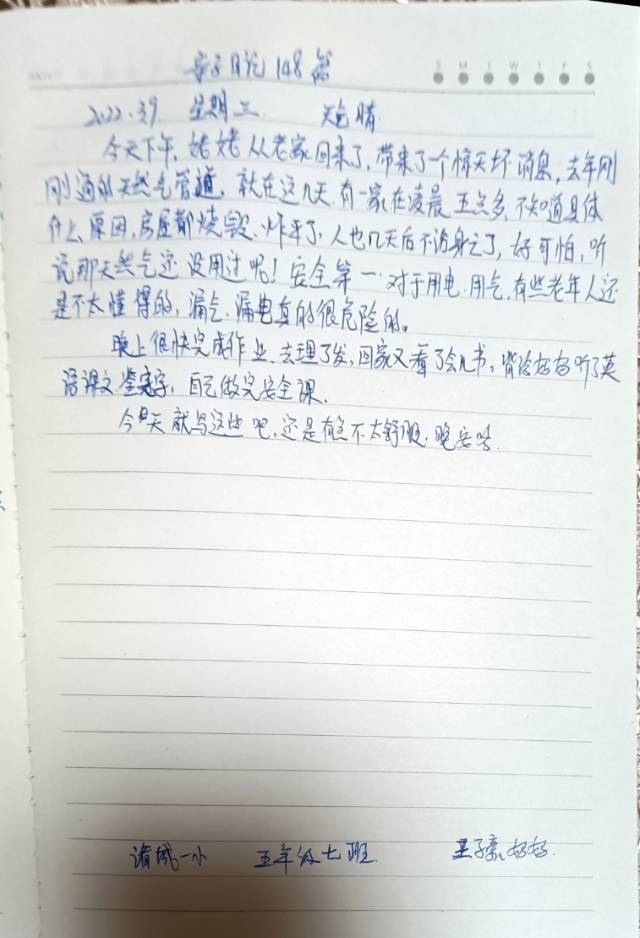 亲子日记148篇
2022.3.9 星期三 天气晴
今天下午,姥姥从老家回来了,带来了一个惊天坏消息,去年刚
刚通的天然气管道,就在这几天,有一家在凌晨五点多,不知道具体
什么原因,房屋都烧毁,炸平了,人也几天后不治身亡了,好可怕,听
说那天然气还没用过呢!安全第一.对于用电.用气,有些老年人还
是不太懂得的,漏气.漏电真的很危险的。
晚上很快完成作业.去理了发,回家又看了会儿书,背给妈妈听了英
语课文 签完字,自己做完安全课.
今天就写这些吧,还是有些不太舒服.晚安
诸城一小 五年级七班 王子 妈妈